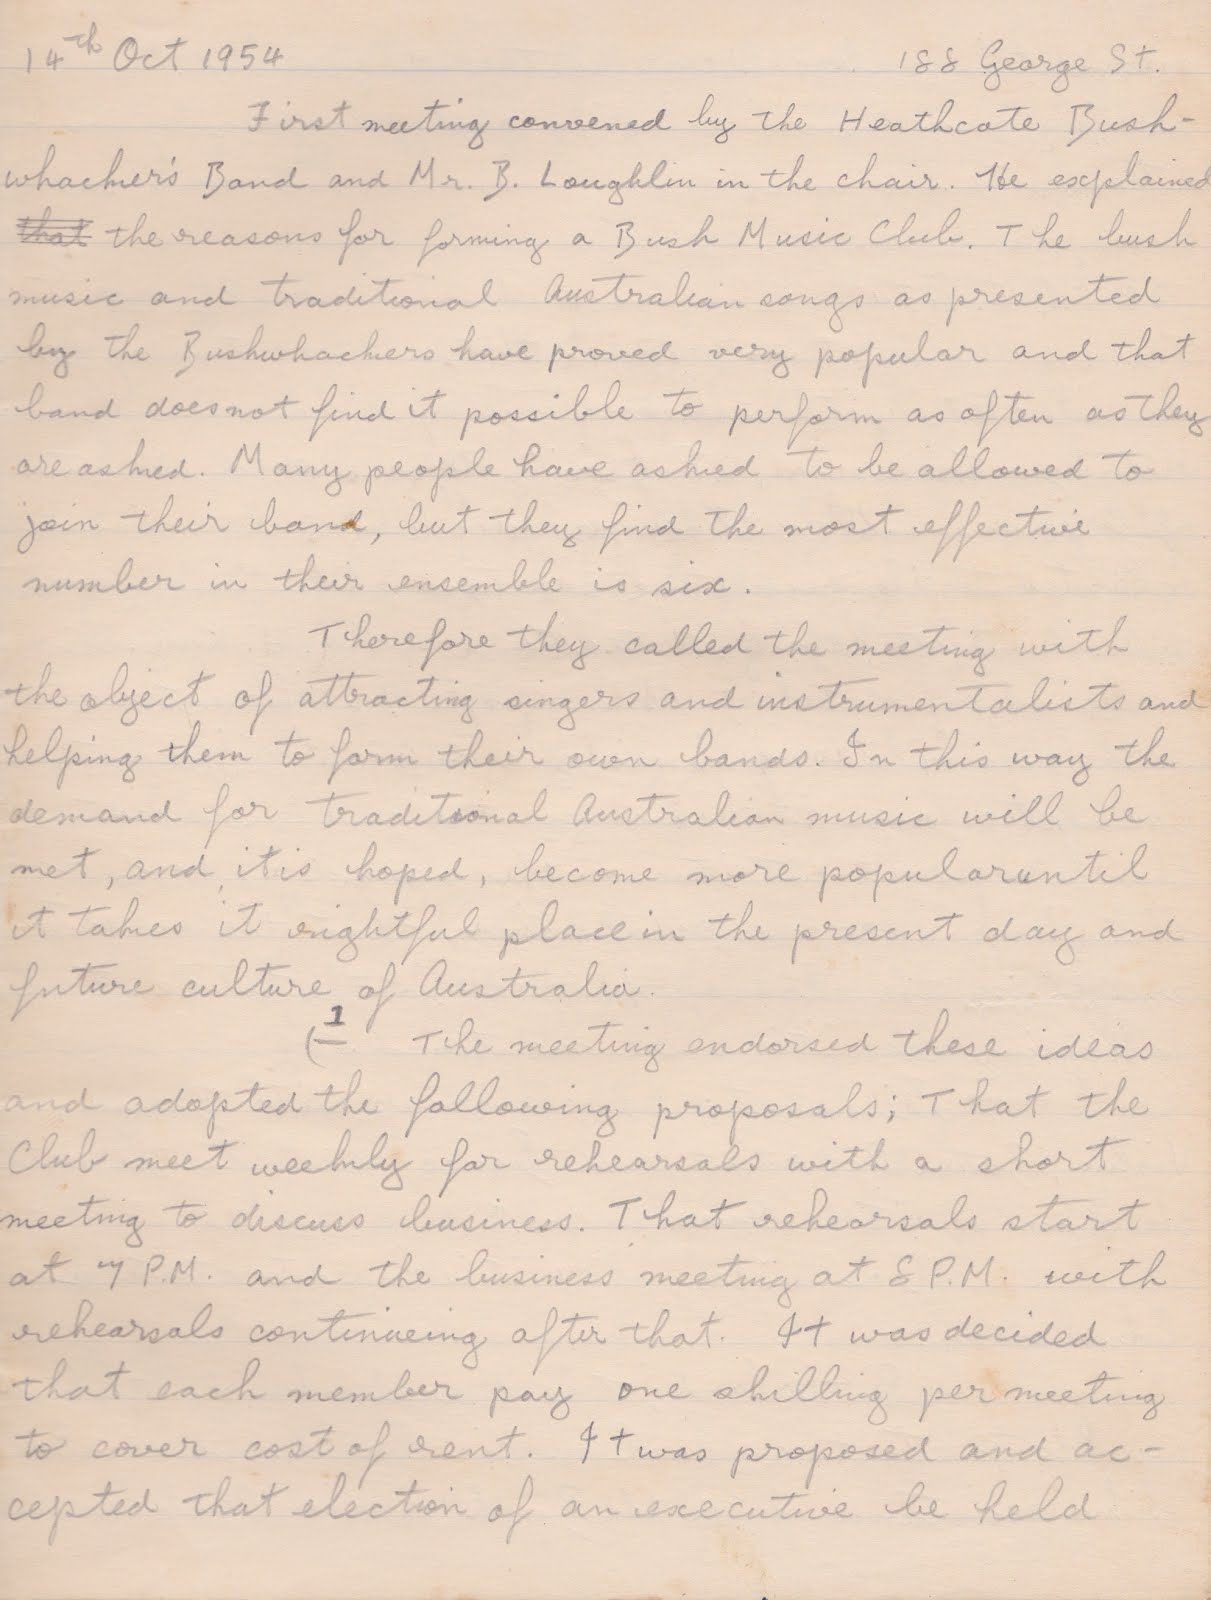 14th Oct 1954 188 George St.
First meeting convened by the Heathcote Bush-
whacker's Band and Mr. B. Loughlin in the chair. He explained
that the reasons for forming a Bush Music Club. The bush
music and traditional Australian songs as presented
by the Bushwhackers have proved very popular and that
band does not find it possible to perform as often as they
are asked. Many people have asked to be allowed to
join their band, but they find the most effective
number in their ensemble is six.
Therefore they called the meeting with
the object of attracting singers and instrumentalists and
helping them to form their own bands. In this way the
demand for traditional Australian music will be
met, and, it is hoped, become more popular until
it takes it rightful place in the present day and
future culture of Australia.
(1 The meeting endorsed these ideas
and adopted the following proposals; That the
Club meet weekly for rehearsals with a short
meeting to discuss business. That rehearsals start
at 7 P.M. and the business meeting at 8 P.M. with
rehearsals continueing after that. It was decided
that each member pay one shilling per meeting
to cover cost of rent. It was proposed and ac-
cepted that election of an executive be held